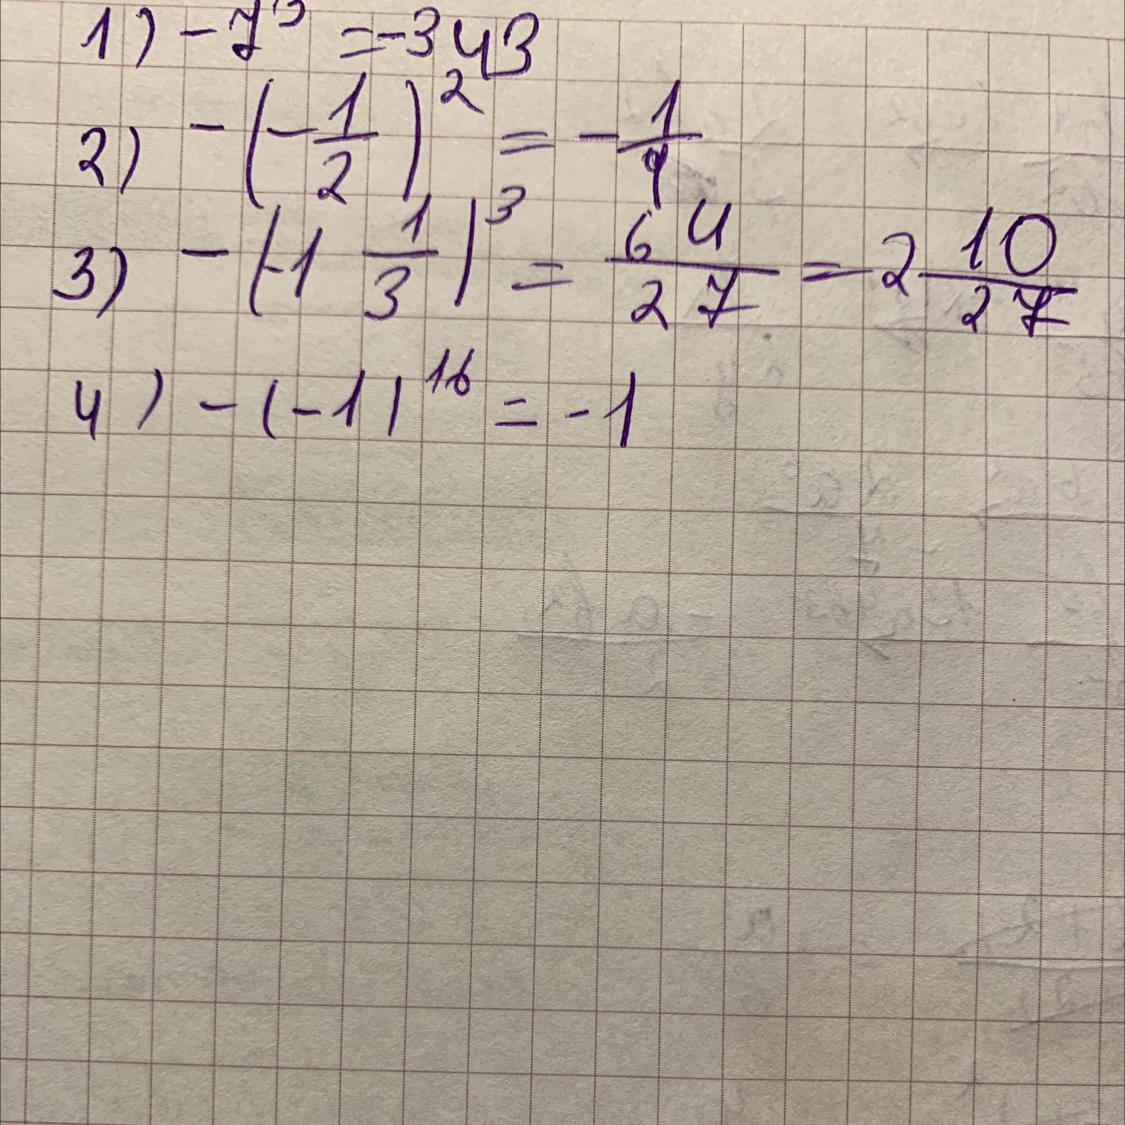 1) -7³ = -343
2) -(-1/2)² = -1/4
3) -(-1 1/3)³ = 64/27 = 2 10/27
4) -(-1)¹⁶ = -1